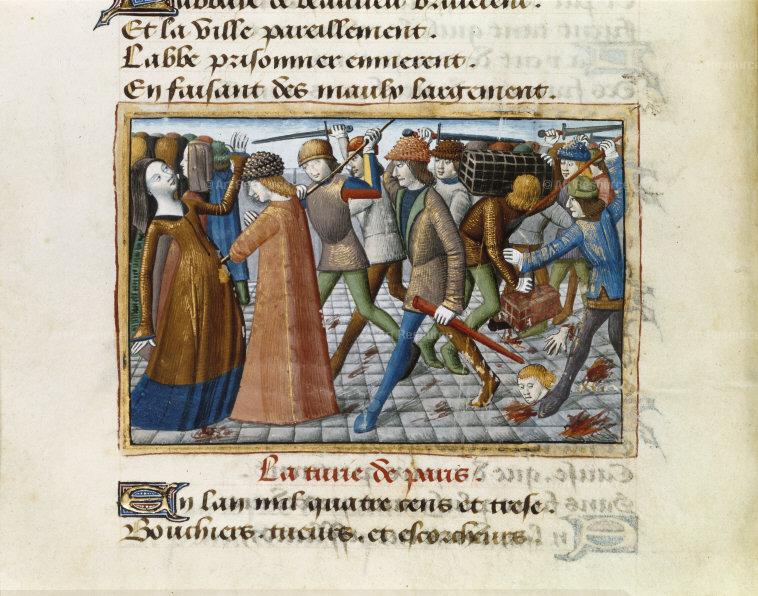 L'abbaie de beaulieu brulerent.
Et la ville pareillement.
L'abbe prisonnier enmerent.
En faisant des maulx largement.
La turie de paris.
En lan mil quatre cens et trese.
Bouchiers. tueurs. et escorcheurs.